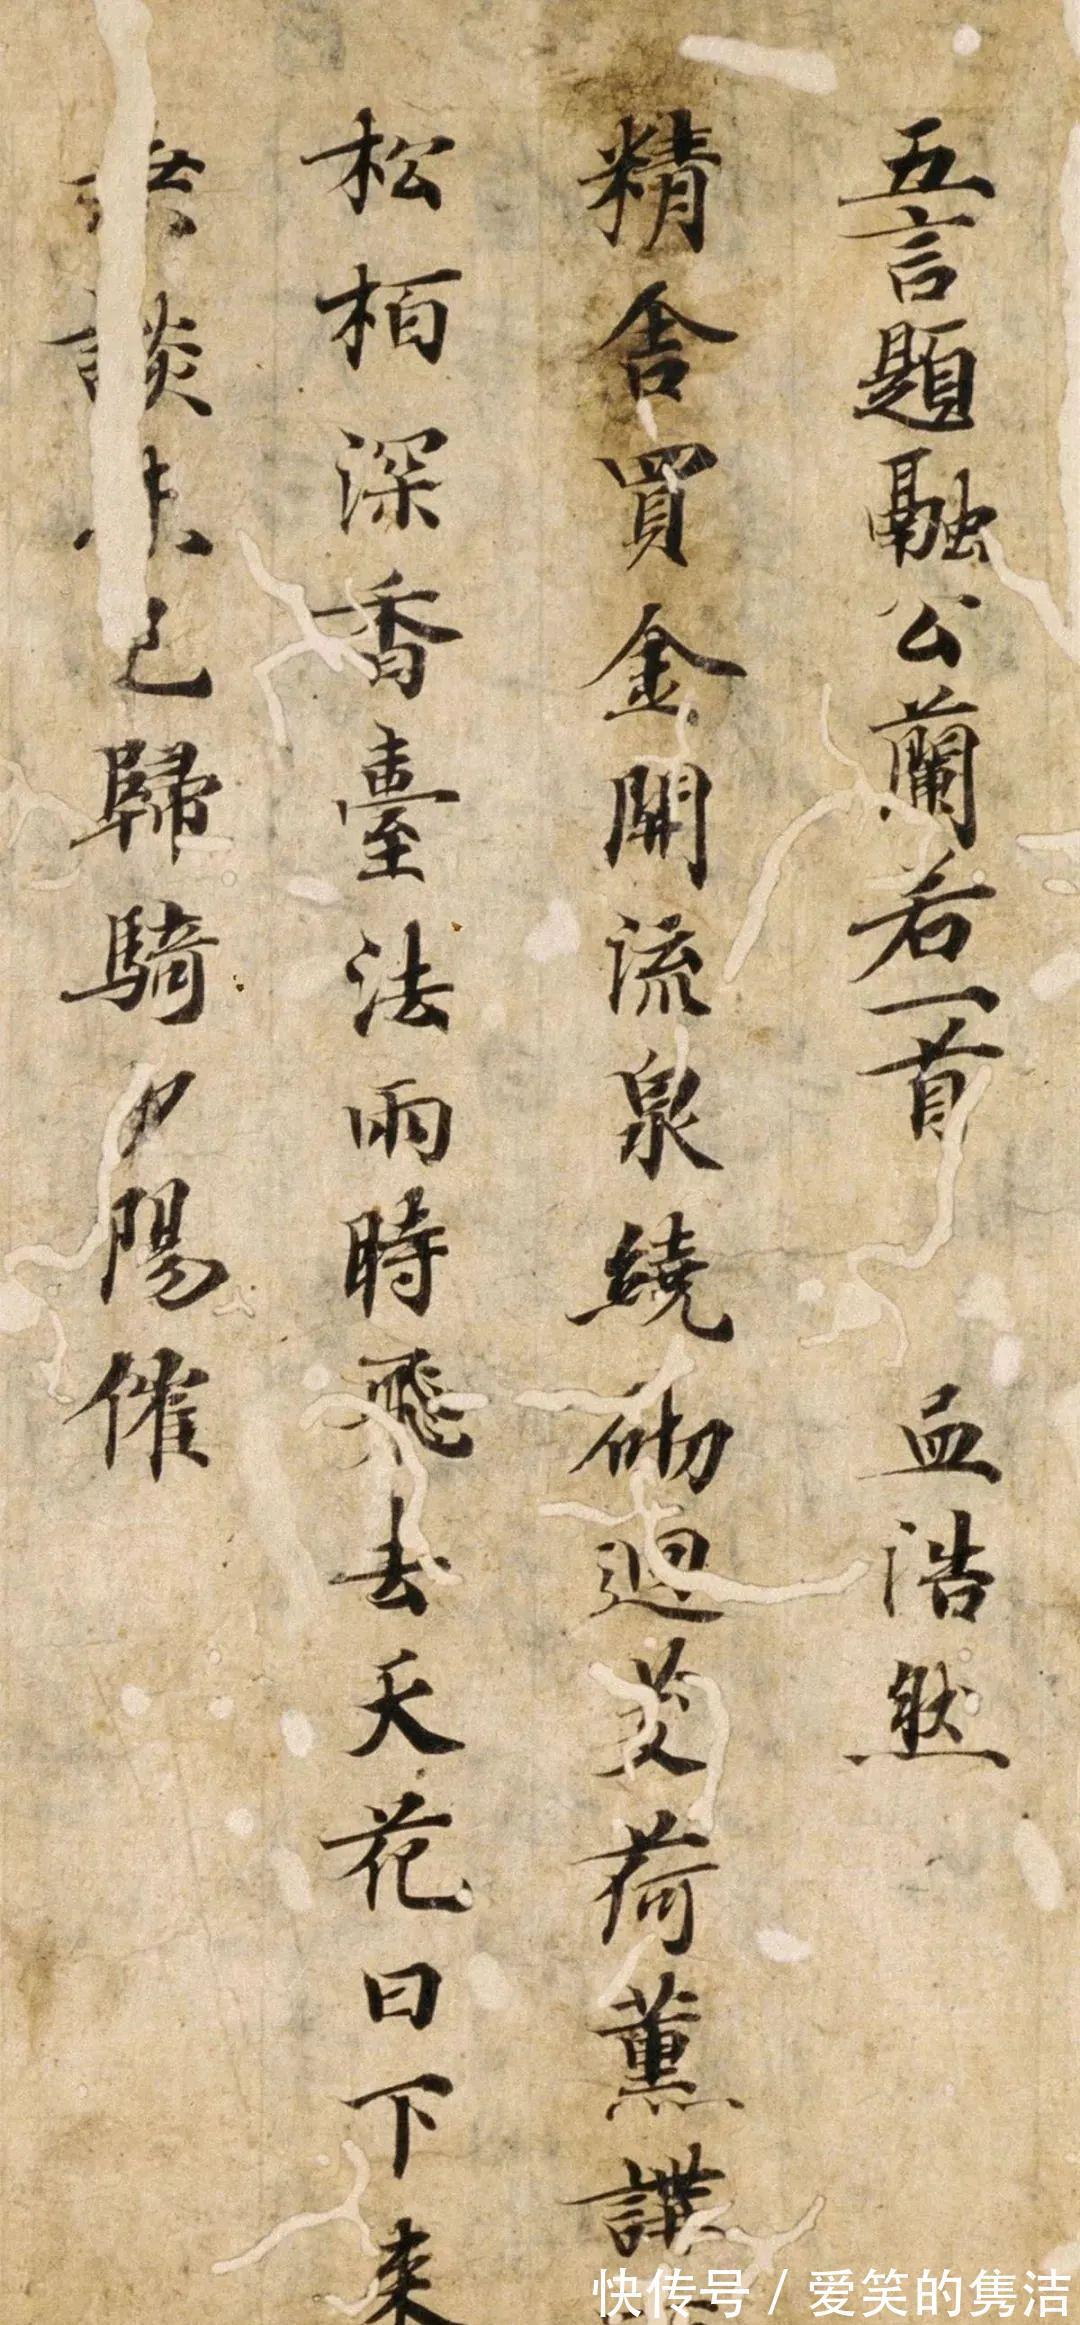 五言題融公蘭若一首 孟浩然
精舍買金開流泉繞砌迴芰荷薰講
松柏深香臺法雨時飛去天花日下来
談未已歸騎夕陽催
快传号/爱笑的隽洁